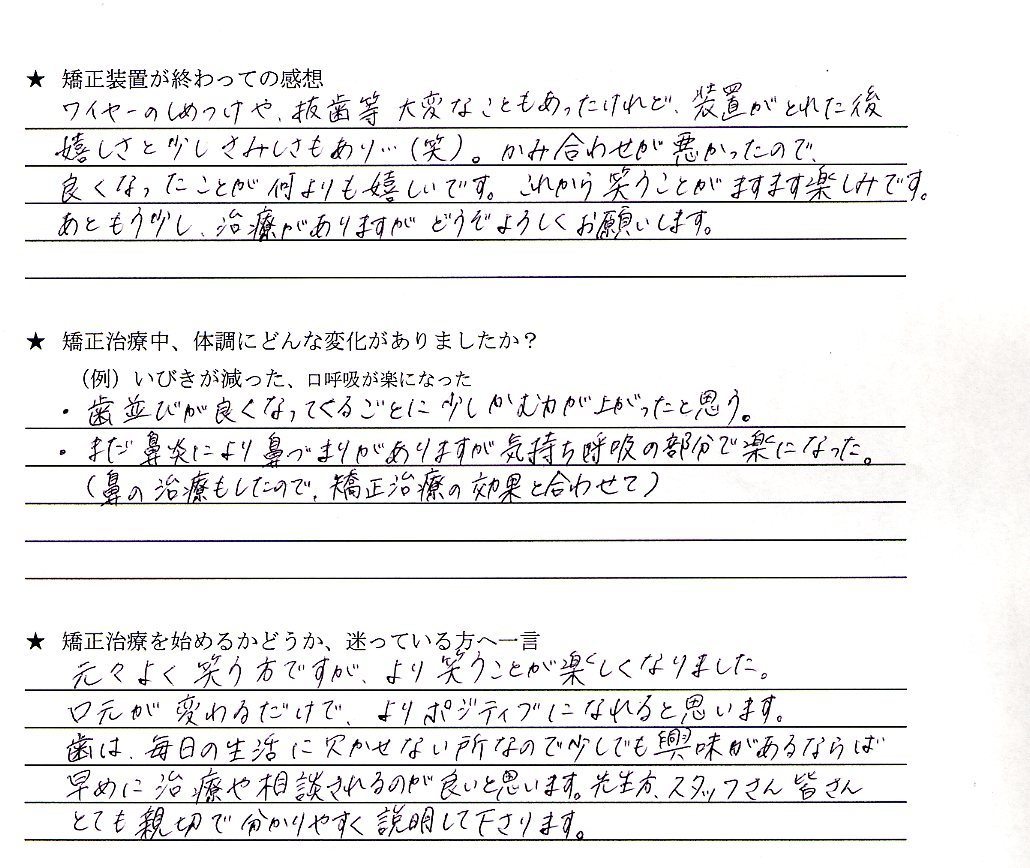 ★ 矯正装置が終わっての感想
ワイヤーのしめつけや、抜歯等 大変なこともあったけれど、装置がとれた後
嬉しさと少しさみしさもあり…(笑)。かみ合わせが悪かったので、
良くなったことが何よりも嬉しいです。これから笑うことがますます楽しみです。
あともう少し、治療がありますがどうぞよろしくお願いします。
★ 矯正治療中、体調にどんな変化がありましたか？
（例）いびきが減った、口呼吸が楽になった
・歯並びが良くなってくるごとに少しかむ力が上がったと思う。
・まだ鼻炎により鼻づまりがありますが気持ち呼吸の部分で楽になった。
(鼻の治療もしたので、矯正治療の効果と合わせて)
★ 矯正治療を始めるかどうか、迷っている方へ一言
元々よく笑う方ですが、より笑うことが楽しくなりました。
口元が変わるだけで、よりポジティブになれると思います。
歯は、毎日の生活に欠かせない所なので少しでも興味があるならば
早めに治療や相談されるのが良いと思います。先生方、スタッフさん皆さん
とても親切で分かりやすく説明して下さります。